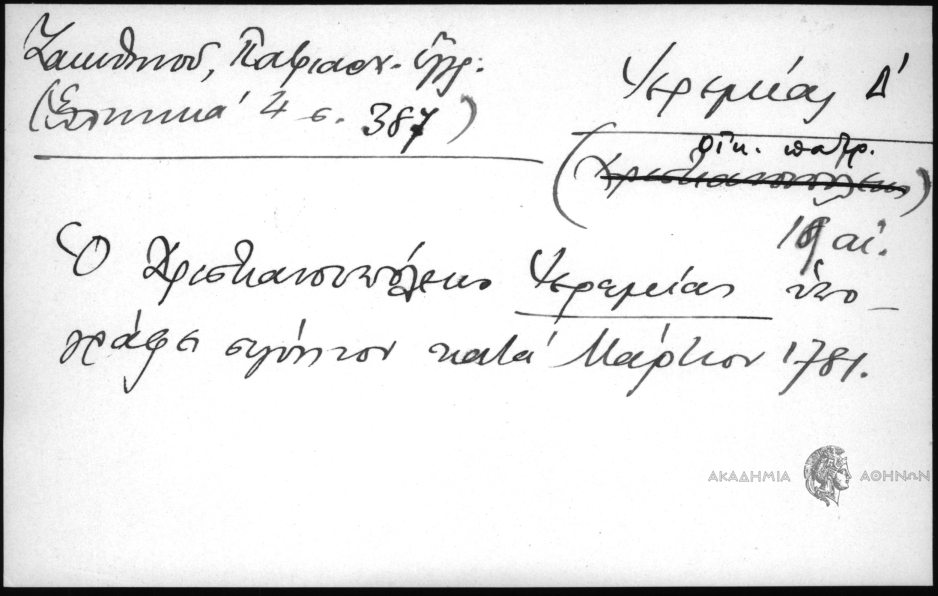 Ζακυθηνοῦ, Πατριαρχ. ἔγγρ.
(Ἑλληνικά 4 σ. 387)
Ἱερεμίας Δ΄
οἰκ. πατρ.
(Χριστιανουπόλεως)
18 αἰ.
Ὁ Χριστιανουπόλεως Ἱερεμίας ὑπο-
γράφει σιγίλλιον κατά Μάρτιον 1781.
ΑΚΑΔΗΜΙΑ ΑΘΗΝΩΝ